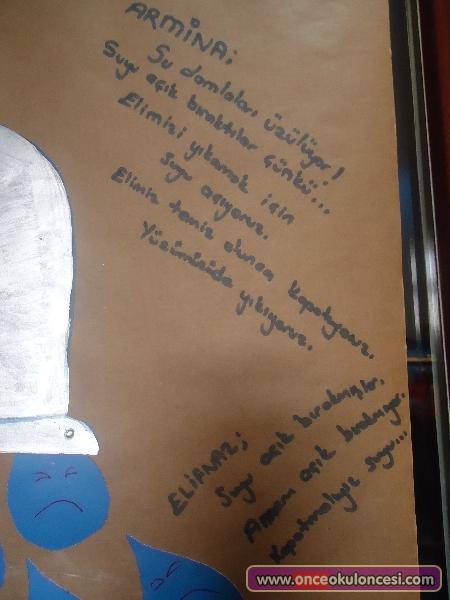 ARMİNA;
Su damlaları üzülüyor!
Suyu açık bıraktılar çünkü...
Elimizi yıkamak için
Suyu açıyoruz.
Elimiz temiz olunca kapatıyoruz.
Yüzümüzüde yıkıyoruz.
ELİFNAZ;
Suyu açık bırakmışlar.
Annem açık bırakmıyor.
Kapatmalıyız suyu...
www.onceokuloncesi.com